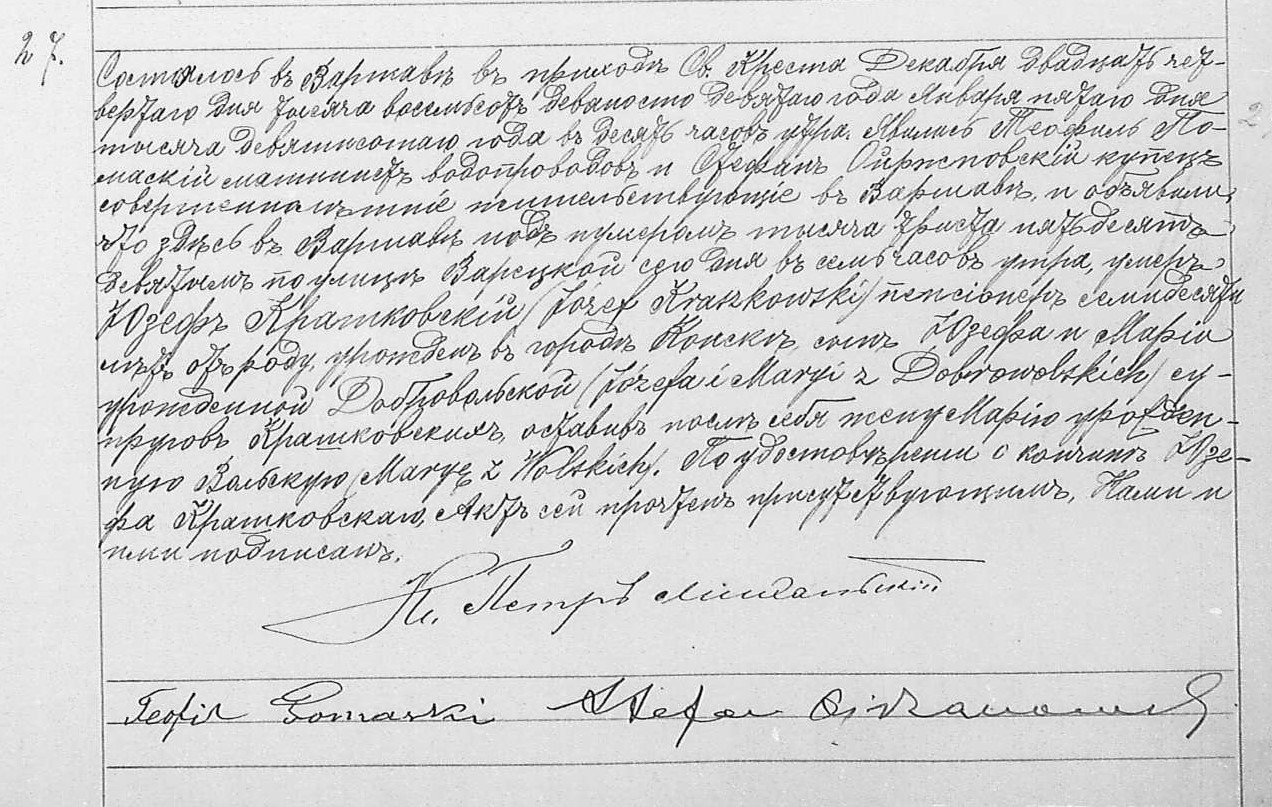 27.
Состоялось въ Варшавѣ въ приходѣ Св. Креста Декабря двадцать чет-
вертаго дня тысяча восемьсотъ девяносто девятаго года Января пятаго дня
тысяча девятисотаго года въ десять часовъ утра. Явились Теофиль По-
маскій машинистъ водопроводовъ и Стефанъ купецъ
совершеннолѣтніе жительствующіе въ Варшавѣ, и объявили,
что здѣсь въ Варшавѣ подъ нумеромъ тысяча триста пятьдесятъ
девятымъ по улицѣ Варецкой сего дня въ семь часовъ утра, умеръ
Юзефъ Крашковскій (Józef Kraszkowski) пенсіонеръ семидесяти
лѣтъ отъ роду, урожденъ въ городѣ Конскѣ, сынъ Юзефа и Маріи
урожденной Добровольской (Józefa i Maryi z Dobrowolskich) су-
пруговъ Крашковскихъ, оставивъ послѣ себя жену Марію урожден-
ную Вольскую (Maryę z Wolskich). По удостовѣреніи о кончинѣ Юзе-
фа Крашковскаго, Актъ сей прочтенъ присутствующимъ, Нами и
ими подписанъ.
Кс. Петръ
Teofil Pomaski Stefan